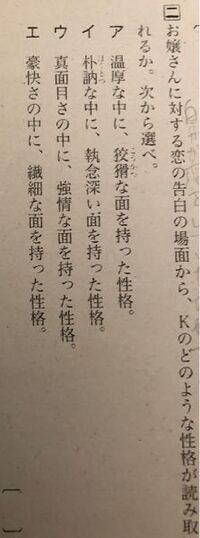 二
お嬢さんに対する恋の告白の場面から、Kのどのような性格が読み取
れるか。次から選べ。
ア 温厚な中に、狡猾な面を持った性格。
イ 朴訥な中に、執念深い面を持った性格。
ウ 真面目さの中に、強情な面を持った性格。
エ 豪快さの中に、繊細な面を持った性格。
〔　〕